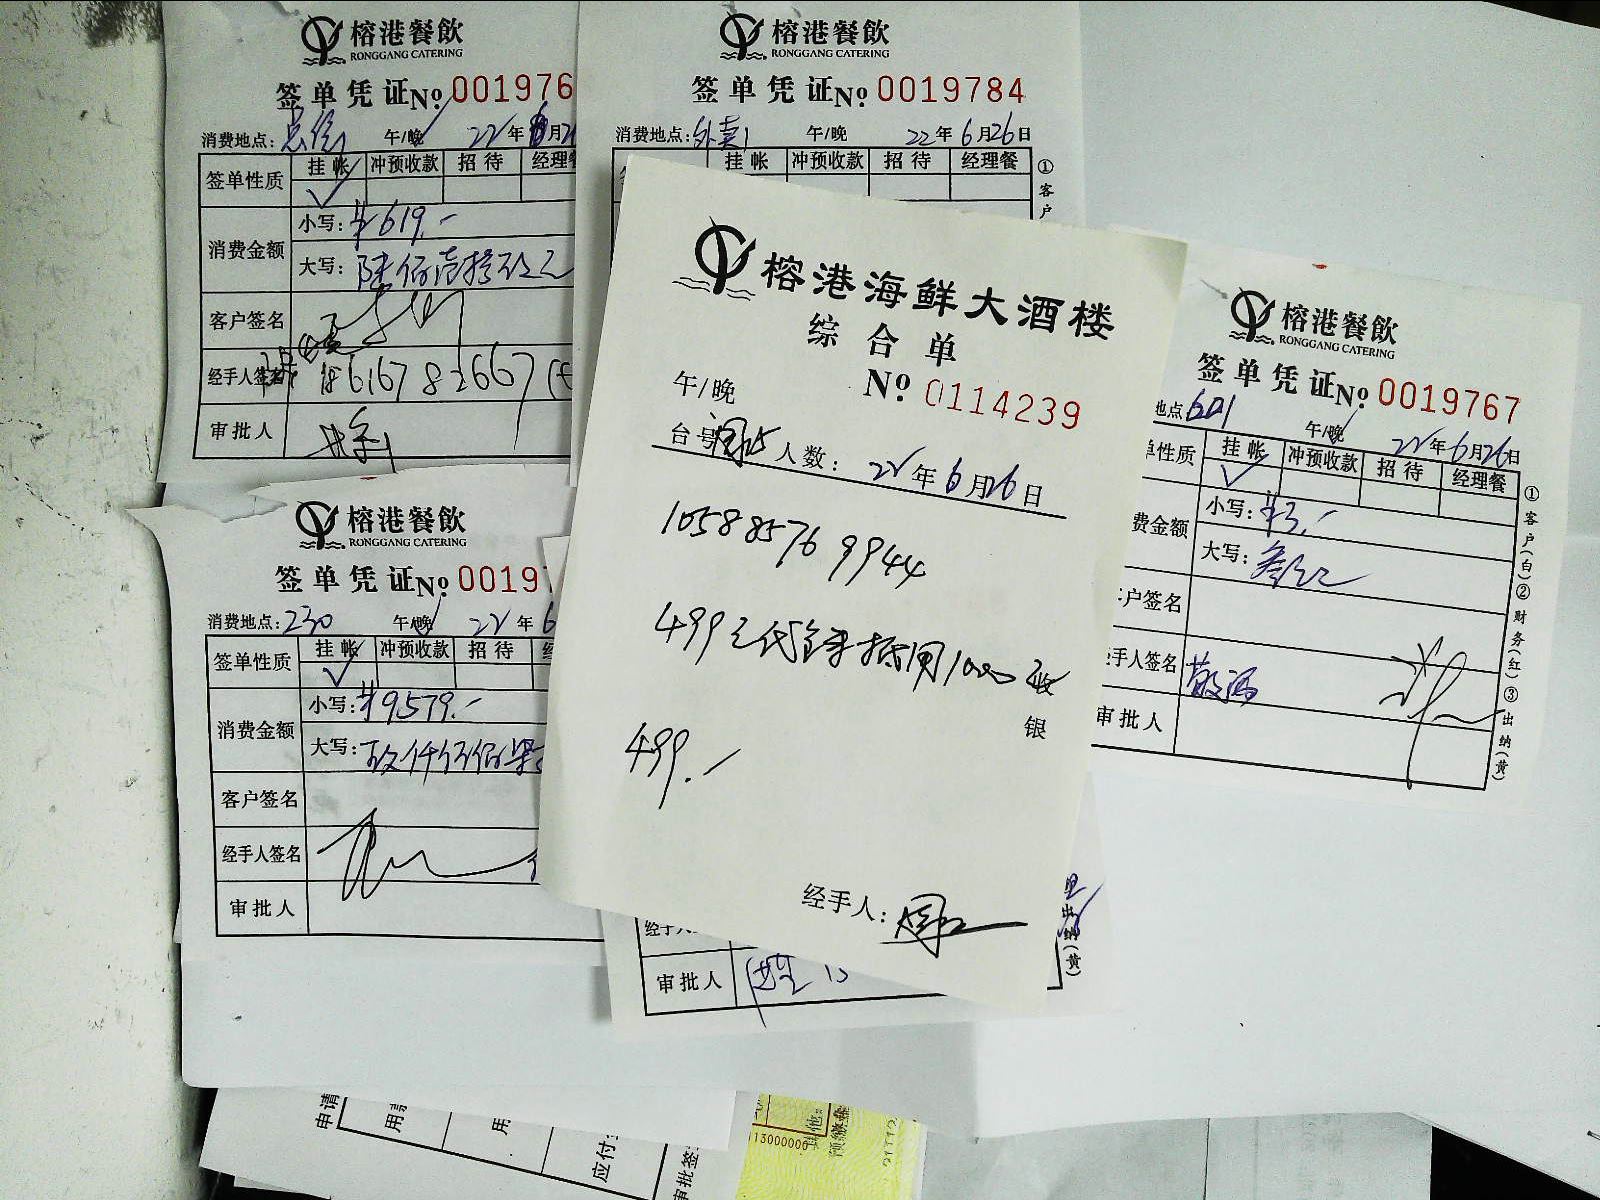 榕港餐飲
RONGGANG CATERING
签单凭证 № 001976
消费地点: 午/晚 22年6月26
签单性质 挂帐 冲预收款 招待 经理餐
✓
消费金额 小写: ¥619.-
大写: 陆佰壹拾玖元
客户签名
经手人签名 18616782667
审批人
榕港餐飲
RONGGANG CATERING
签单凭证 № 0019784
消费地点: 外卖1 午/晚 22年6月26日
挂帐 冲预收款 招待 经理餐
①客户
榕港餐飲
RONGGANG CATERING
签单凭证 № 0019
消费地点: 230 午/晚 22年6
签单性质 挂帐 冲预收款 招待
✓
消费金额 小写: ¥9579.-
大写: 玖仟伍佰柒
客户签名
经手人签名
审批人
榕港海鲜大酒楼
综合单
午/晚 № 0114239
台号 人数: 22年6月26日
1058 8576 9944
499元代金券抵用1000 收
银
499.-
经手人:
榕港餐飲
RONGGANG CATERING
签单凭证 № 0019767
地点 601 午/晚 22年6月26日
单性质 挂帐 冲预收款 招待 经理餐
✓
费金额 小写: ¥3.-
大写: 叁元
客户签名
经手人签名
审批人
①客户(白)②财务(红)③出纳(黄)
审批人
出纳(黄)
申请
应付
审批签
13000000
其他: